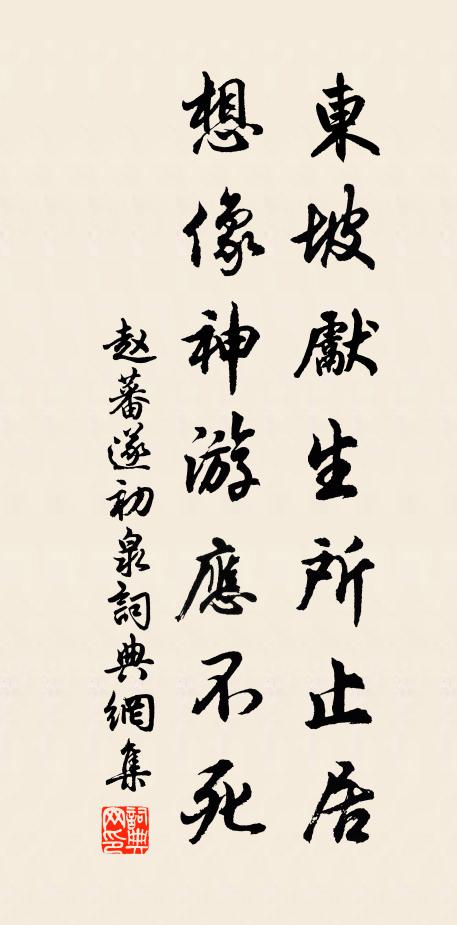 東坡獻生所止居
想像神游應不死
赵蕃遂初泉詞典網集
詞典網印